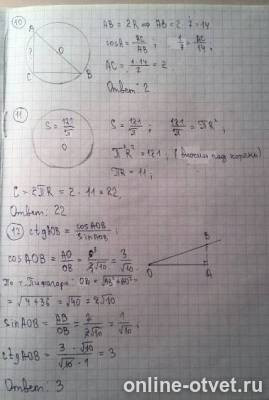 10
A
?
O
C
B
AB = 2R ⇒ AB = 2·7 = 14
cosA = AC/AB ; 1/7 = AC/14 ;
AC = 1·14/7 = 2
Ответ: 2
11
S = 121/π
O
S = 121/π ; 121/π = πR² ;
π²R² = 121 ; (вносим под корень)
πR = 11 ;
C = 2πR = 2 · 11 = 22,
Ответ: 22
12
ctgAOB = cosAOB/sinAOB ;
cosAOB = AO/OB = 6/2√10 = 3/√10
B
O
A
По т. Пифагора: OB = √AB²+AO² =
= √4+36 = √40 = 2√10
sinAOB = AB/OB = 2/2√10 = 1/√10 ;
ctgAOB = 3·√10/√10·1 = 3
Ответ: 3
online-otvet.ru